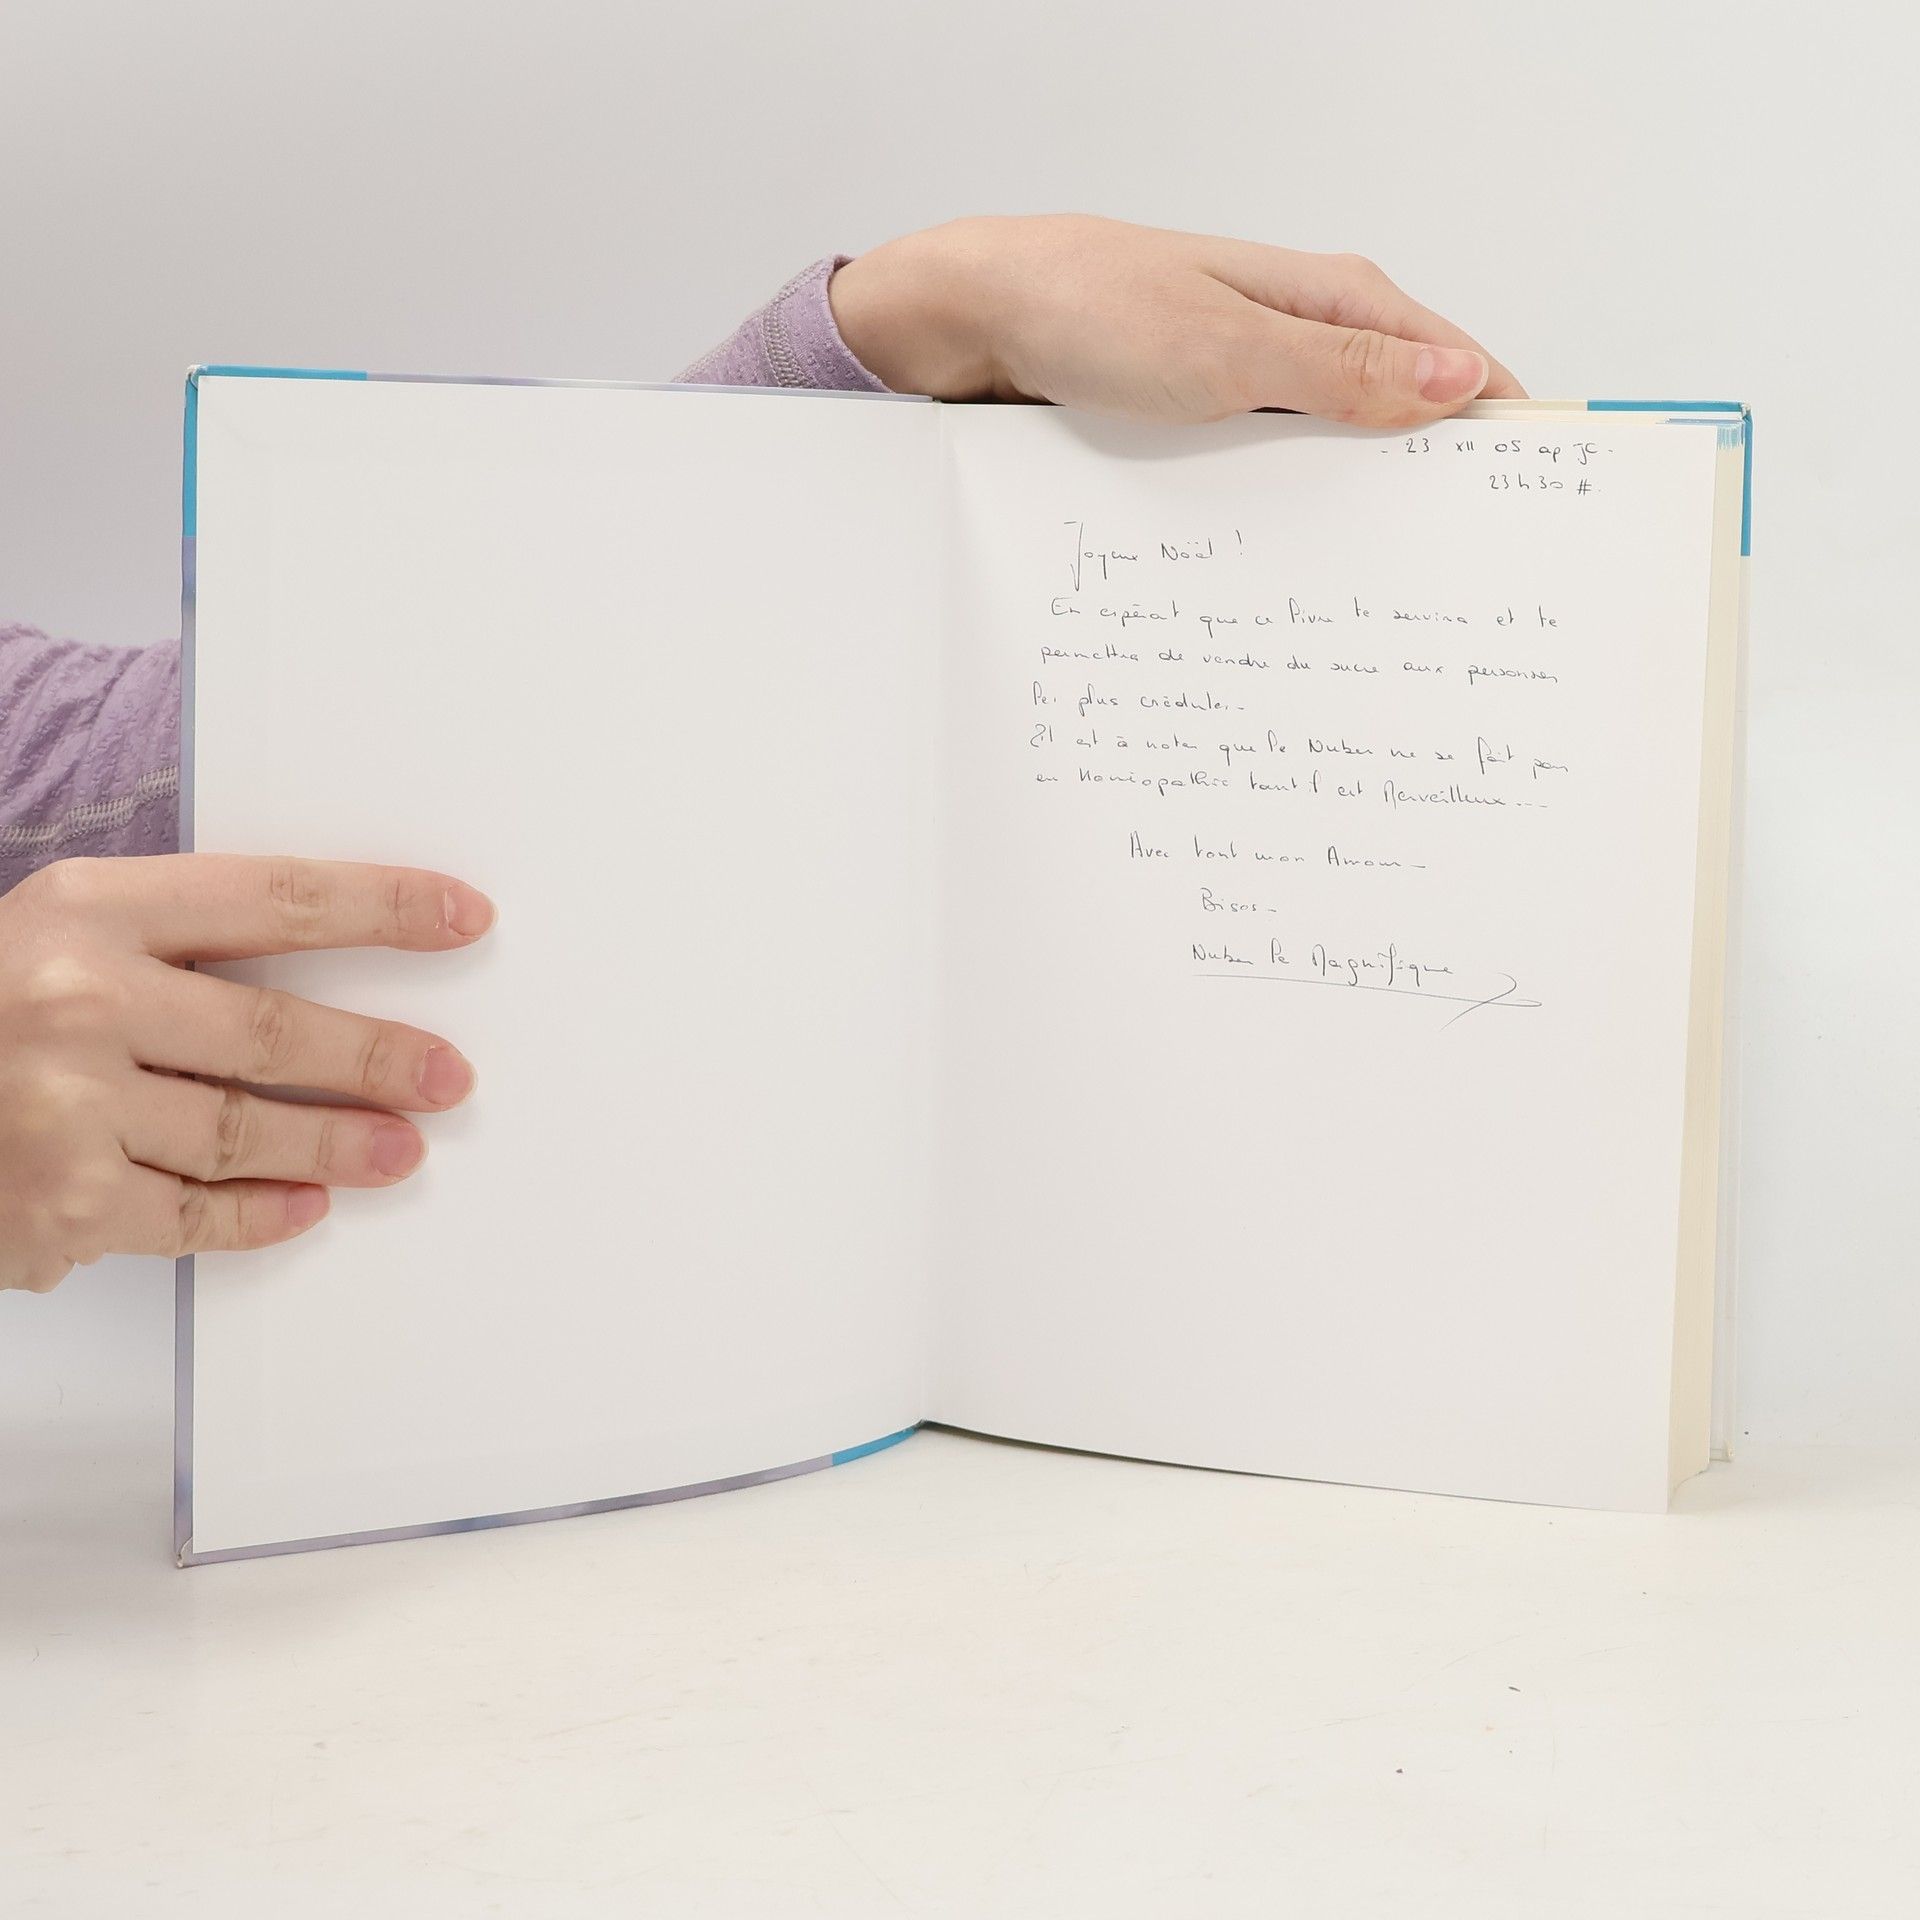 - 23 XII 05 ap JC -
23h30 #.
Joyeux Noël !
En espérant que ce livre te servira et te
permettra de vendre du sucre aux personnes
les plus crédules -
Il est à noter que le Nuber ne se fait pas
en Homéopathie tant il est Merveilleux ---
Avec tout mon Amour -
Bisos -
Nuber le Magnifique